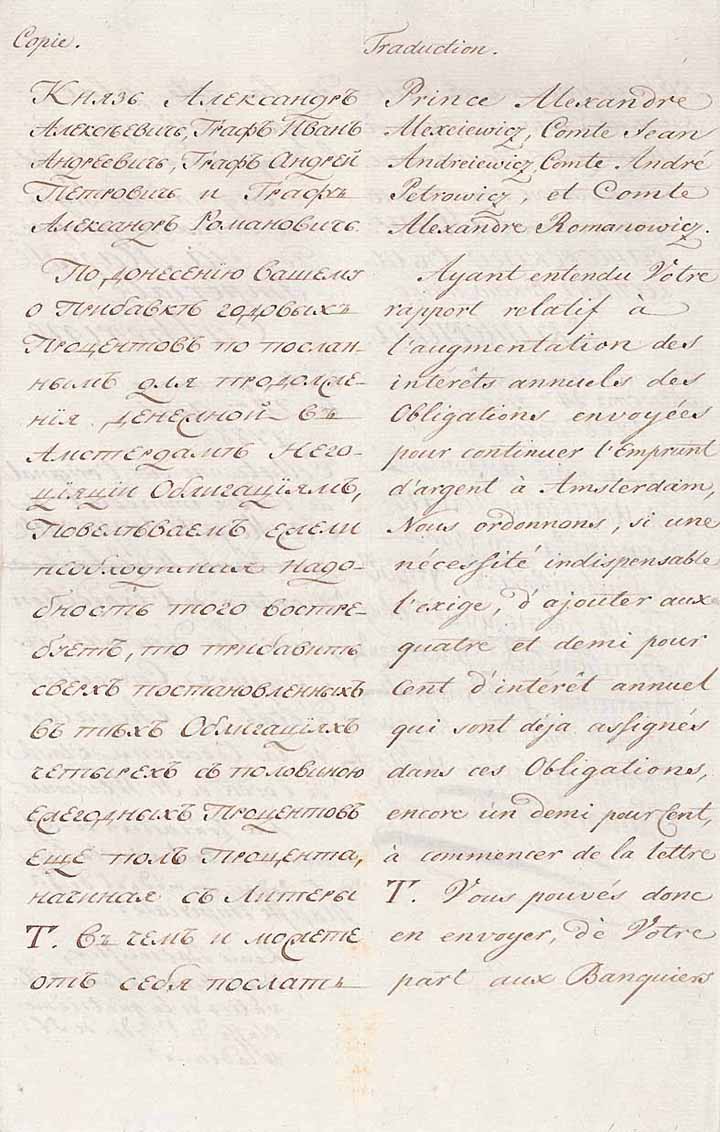 Copie.
Князь Александръ
Алексѣевичь, Графъ Иванъ
Андреевичь, Графъ Андрей
Петровичь и Графъ
Александръ Романовичь.
По донесенїю вашему
о прибавкѣ годовыхъ
процентовъ по послан-
нымъ для продолже-
нїя денежной въ
Амстердамѣ него-
цїяцїи Облигацїямъ,
Повелѣваемъ ежели
необходимая надо-
бность того востре-
буетъ, то прибавить
сверхъ постановленныхъ
въ тѣхъ Облигацїяхъ
четырехъ съ половиною
ежегодныхъ процентовъ
еще полъ процента,
начиная съ Литеры
Т. въ чемъ и можете
отъ себя послать
Traduction.
Prince Alexandre
Alexeiewicz, Comte Jean
Andreiewicz, Comte André
Petrowicz, et Comte
Alexandre Romanowicz.
Ayant entendu Votre
rapport relatif à
l'augmentation des
intérêts annuels des
Obligations envoyées
pour continuer l'Emprunt
d'argent à Amsterdam,
Nous ordonnons, si une
nécessité indispensable
l'exige, d'ajouter aux
quatre et demi pour
Cent d'intérêt annuel
qui sont déja assignés
dans ces Obligations,
encore un demi pour Cent,
à commencer de la lettre
T. Vous pouvés donc
en envoyer, de Votre
part aux Banquiers